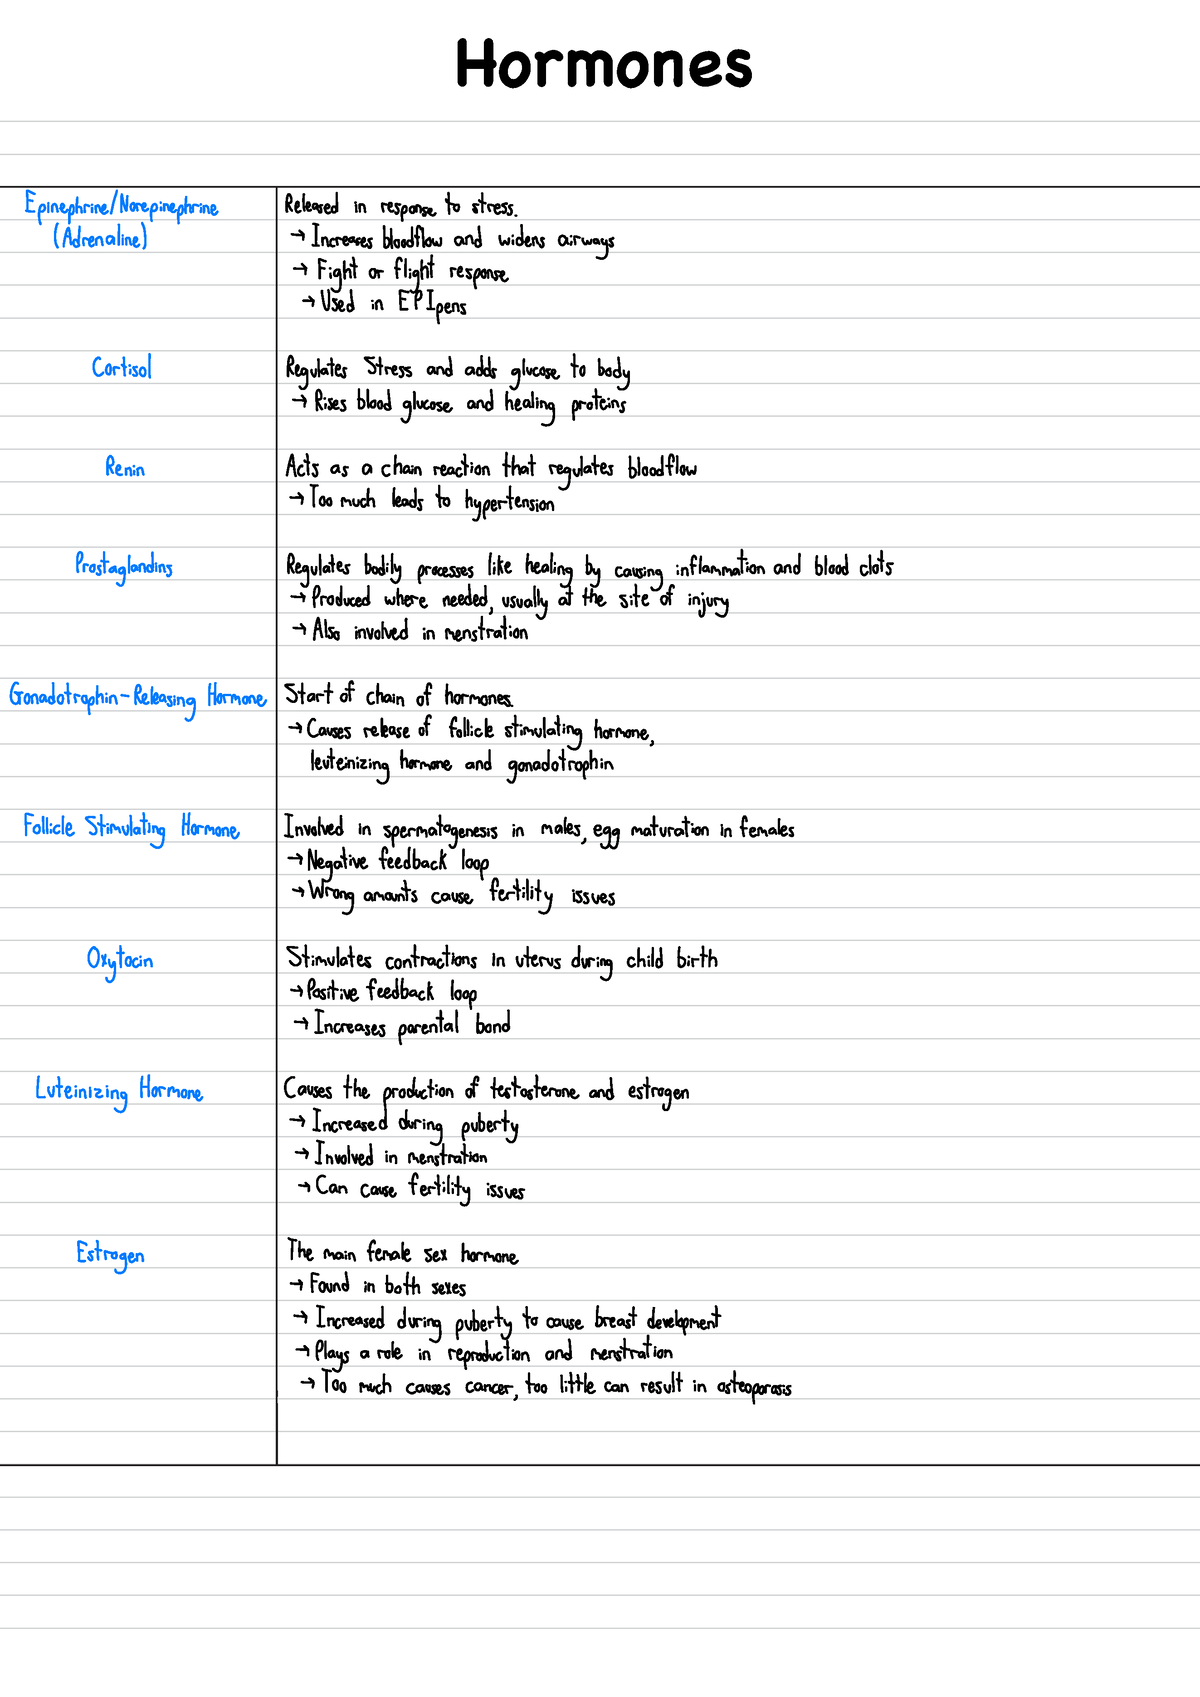 Hormones
Epinephrine/Norepinephrine
(Adrenaline)
Released in response to stress.
→ Increases bloodflow and widens airways
→ Fight or flight response
→ Used in EPIpens
Cortisol
Regulates Stress and adds glucose to body
→ Rises blood glucose and healing proteins
Renin
Acts as a chain reaction that regulates bloodflow
→ Too much leads to hypertension
Prostaglandins
Regulates bodily processes like healing by causing inflammation and blood clots
→ Produced where needed, usually at the site of injury
→ Also involved in menstration
Gonadotrophin-Releasing Hormone
Start of chain of hormones.
→ Causes release of follicle stimulating hormone,
leuteinizing hormone and gonadotrophin
Follicle Stimulating Hormone
Involved in spermatogenesis in males, egg maturation in females
→ Negative feedback loop
→ Wrong amounts cause fertility issues
Oxytocin
Stimulates contractions in uterus during child birth
→ Positive feedback loop
→ Increases parental bond
Luteinizing Hormone
Causes the production of testosterone and estrogen
→ Increased during puberty
→ Involved in menstration
→ Can cause fertility issues
Estrogen
The main female sex hormone
→ Found in both sexes
→ Increased during puberty to cause breast development
→ Plays a role in reproduction and menstration
→ Too much causes cancer, too little can result in osteoporosis